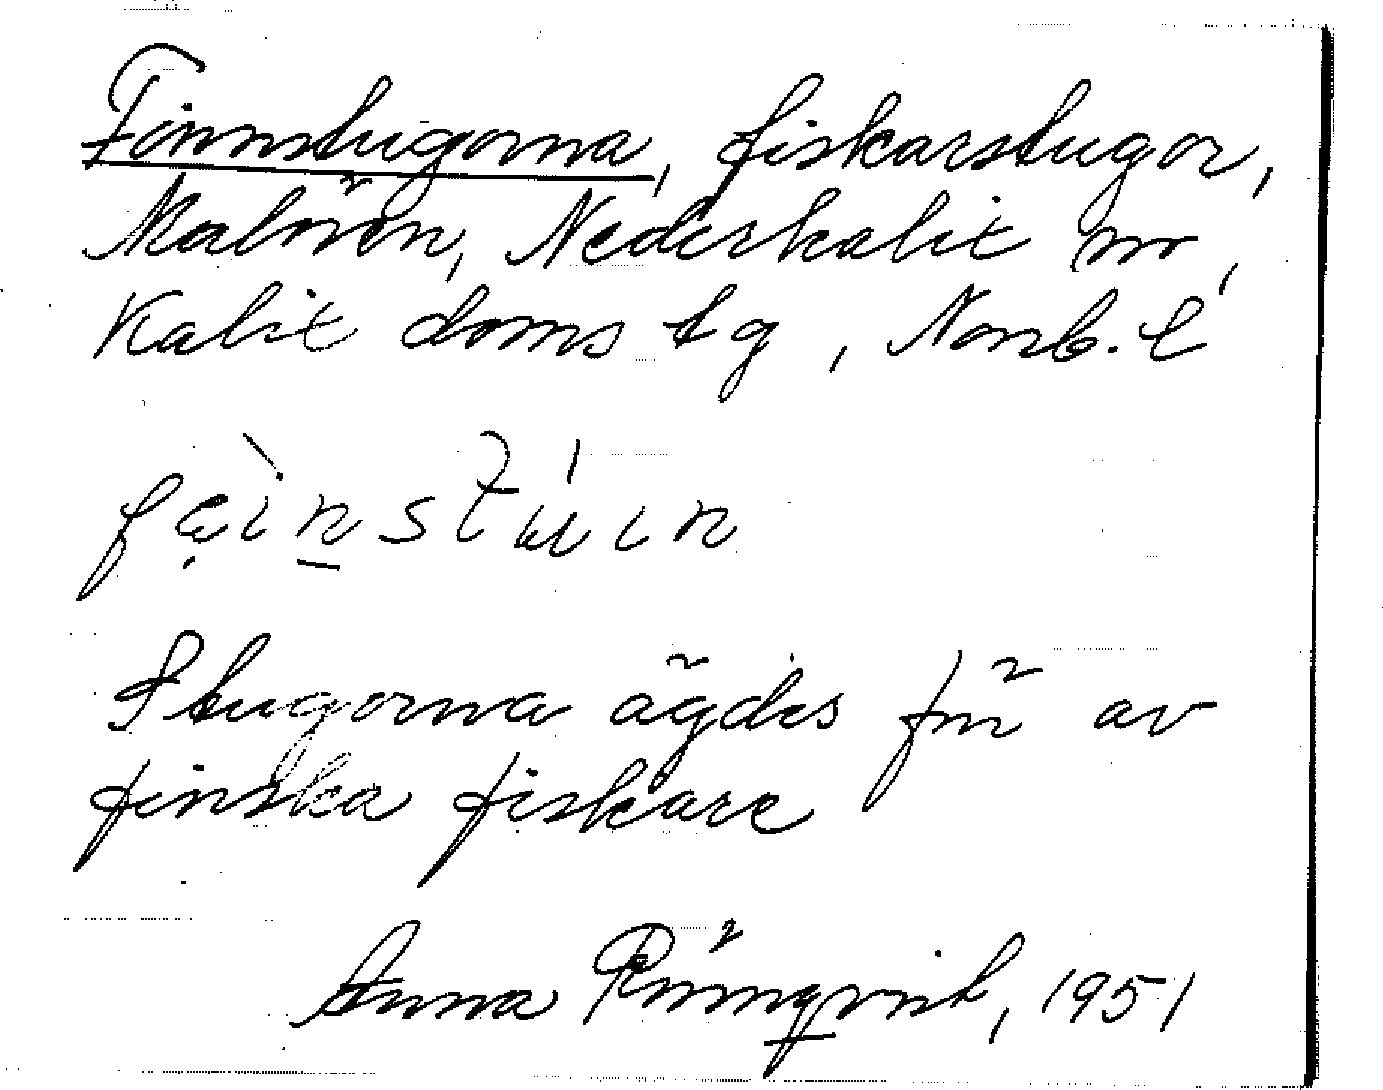 Finnstugorna, fiskarstugor,
Malören, Nederkalix sn,
Kalix doms tg, Norrb. l
Stugorna ägdes förr av
finska fiskare
Anna Rönnqvist, 1951